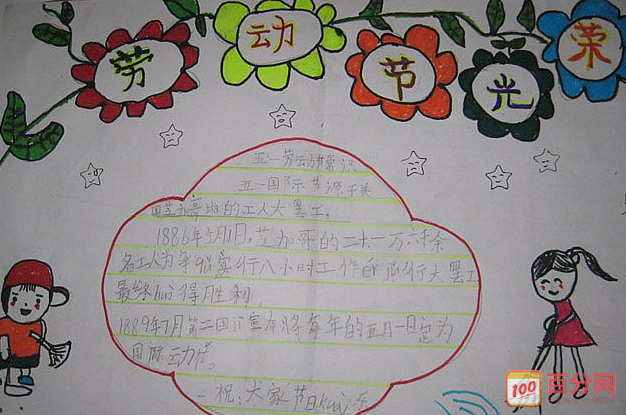 劳动节光荣
五一劳动节常识
五一国际节源于美
国芝加哥城的工人大罢工。
1886年5月1日,芝加哥的二十一万六千余
名工人为争取实行八小时工作制而行大罢工
最终huò得胜利。
1889年7月第二国汁宣布将每年的五月一日定为
国际动节。
祝:大家节日kuài乐
100 百分网